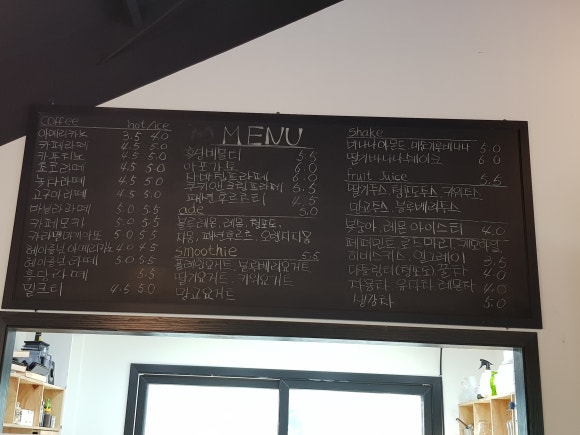 coffee hot/ice
아메리카노 3.5 4.0
카페라떼 4.5 5.0
카푸치노 4.5 5.0
초코라떼 4.5 5.0
녹차라떼 4.5 5.0
고구마라떼 4.5 5.0
바닐라라떼 5.0 5.5
카페모카 5.0 5.5
카라멜마끼아또 5.0 5.5
헤이즐넛 아메리카노 4.0 4.5
헤이즐넛 라떼 5.0 5.5
5.5
밀크티 4.5 5.0
MENU
5.5
아포가토 6.0
자바칩프라페 6.0
쿠키앤크림프라페 5.5
패션후르츠티 5.0
ade 5.0
블루레몬, 레몬, 청포도,
자몽, 패션후르츠, 오렌지자몽
smoothie 5.5
플레인요거트, 블루베리요거트
딸기요거트, 키위요거트
망고요거트
shake
바나나아몬드 미숫가루바나나 5.0
딸기바나나쉐이크 6.0
fruit Juice 5.5
딸기쥬스, 청포도쥬스, 키위쥬스,
망고쥬스, 블루베리쥬스
복숭아, 레몬 아이스티 4.0
페퍼민트, 로즈마리, 캐모마일,
히비스커스, 얼그레이 3.5
4.0
자몽차 유자차 레몬차 4.0
생강차 5.0